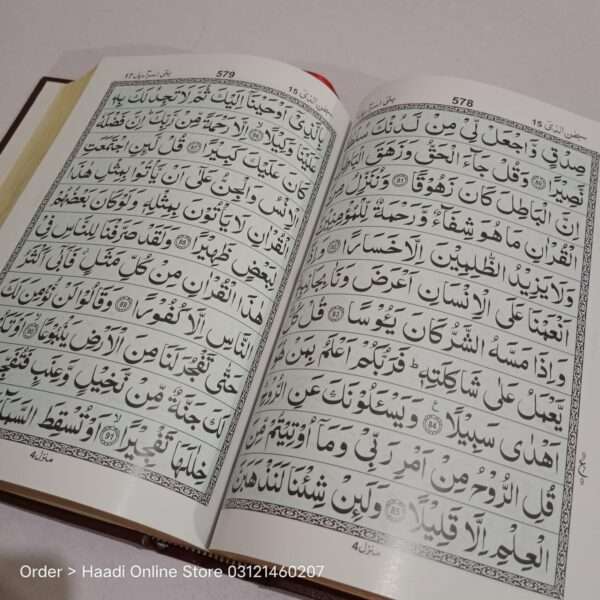 سبحٰن الذی ١٥
578
بنی اسرآءیل ١٧
صِدْقٍ وَّاجْعَلْ لِّیْ مِنْ لَّدُنْكَ
نَّصِیْرًا ۝80 وَقُلْ جَآءَ الْحَقُّ وَزَهَقَ الْبَاطِلُ
اِنَّ الْبَاطِلَ كَانَ زَهُوْقًا ۝81 وَنُنَزِّلُ مِنَ
الْقُرْاٰنِ مَا هُوَ شِفَآءٌ وَّرَحْمَةٌ لِّلْمُؤْمِنِیْنَ
وَلَا یَزِیْدُ الظّٰلِمِیْنَ اِلَّا خَسَارًا ۝82 وَاِذَآ
اَنْعَمْنَا عَلَی الْاِنْسَانِ اَعْرَضَ وَنَاٰ بِجَانِبِهٖ
وَاِذَا مَسَّهُ الشَّرُّ كَانَ یَـُٔوْسًا ۝83 قُلْ كُلٌّ
یَّعْمَلُ عَلٰی شَاكِلَتِهٖ ؕ فَرَبُّكُمْ اَعْلَمُ بِمَنْ هُوَ
اَهْدٰی سَبِیْلًا ۝84 وَیَسْـَٔلُوْنَكَ عَنِ الرُّوْحِ
قُلِ الرُّوْحُ مِنْ اَمْرِ رَبِّیْ وَمَآ اُوْتِیْتُمْ مِّنَ
الْعِلْمِ اِلَّا قَلِیْلًا ۝85 وَلَىِٕنْ شِئْنَا لَنَذْهَبَنَّ
منزل ٤
سبحٰن الذی ١٥
579
بنی اسرآءیل ١٧
بِالَّذِیْۤ اَوْحَیْنَاۤ اِلَیْكَ ثُمَّ لَا تَجِدُ لَكَ بِهٖ
عَلَیْنَا وَكِیْلًا ۝86 اِلَّا رَحْمَةً مِّنْ رَّبِّكَ ؕ اِنَّ فَضْلَهٗ
كَانَ عَلَیْكَ كَبِیْرًا ۝87 قُلْ لَّىِٕنِ اجْتَمَعَتِ
الْاِنْسُ وَالْجِنُّ عَلٰۤی اَنْ یَّاْتُوْا بِمِثْلِ هٰذَا
الْقُرْاٰنِ لَا یَاْتُوْنَ بِمِثْلِهٖ وَلَوْ كَانَ بَعْضُهُمْ
لِبَعْضٍ ظَهِیْرًا ۝88 وَلَقَدْ صَرَّفْنَا لِلنَّاسِ فِیْ
هٰذَا الْقُرْاٰنِ مِنْ كُلِّ مَثَلٍ فَاَبٰۤی اَكْثَرُ
النَّاسِ اِلَّا كُفُوْرًا ۝89 وَقَالُوْا لَنْ نُّؤْمِنَ لَكَ
حَتّٰی تَفْجُرَ لَنَا مِنَ الْاَرْضِ یَنْۢبُوْعًا ۝90 اَوْ تَكُوْنَ
لَكَ جَنَّةٌ مِّنْ نَّخِیْلٍ وَّعِنَبٍ فَتُفَجِّرَ
خِلٰلَهَا تَفْجِیْرًا ۝91 اَوْ تُسْقِطَ السَّمَآءَ
منزل ٤
Order > Haadi Online Store 03121460207